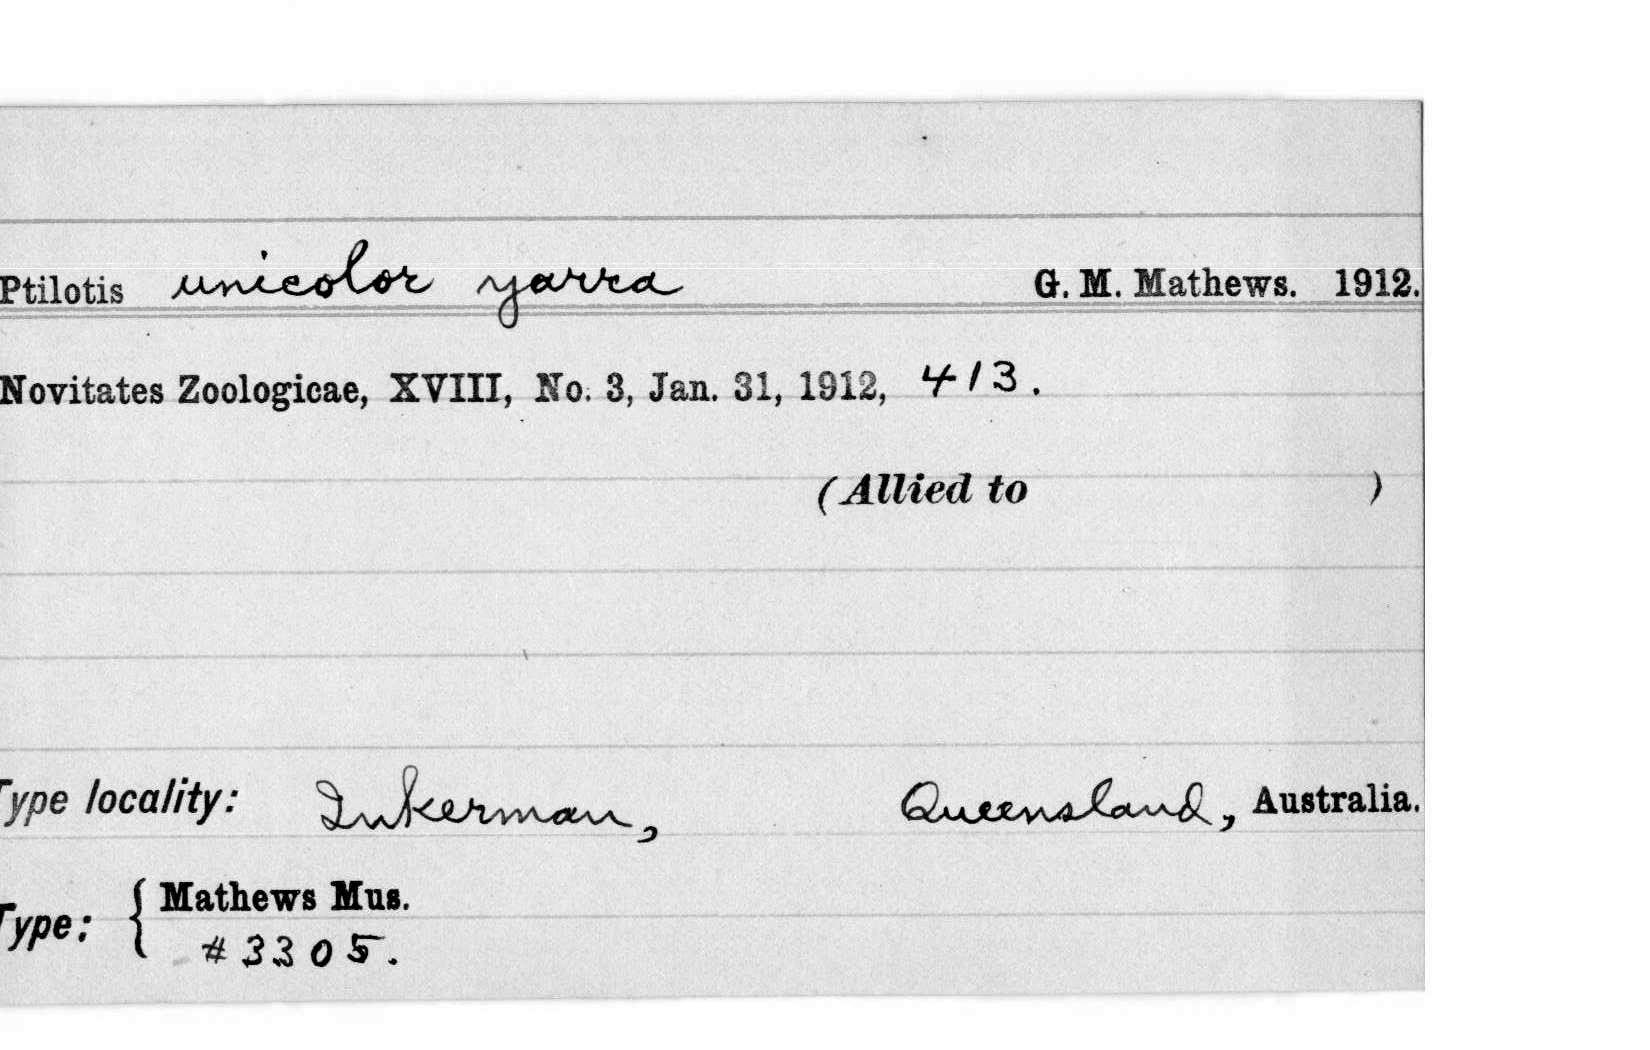 Ptilotis unicolor yarra G. M. Mathews. 1912.
Novitates Zoologicae, XVIII, No. 3, Jan. 31, 1912, 413.
(Allied to )
Type locality: Inkerman, Queensland, Australia.
Type: { Mathews Mus.
#3305.